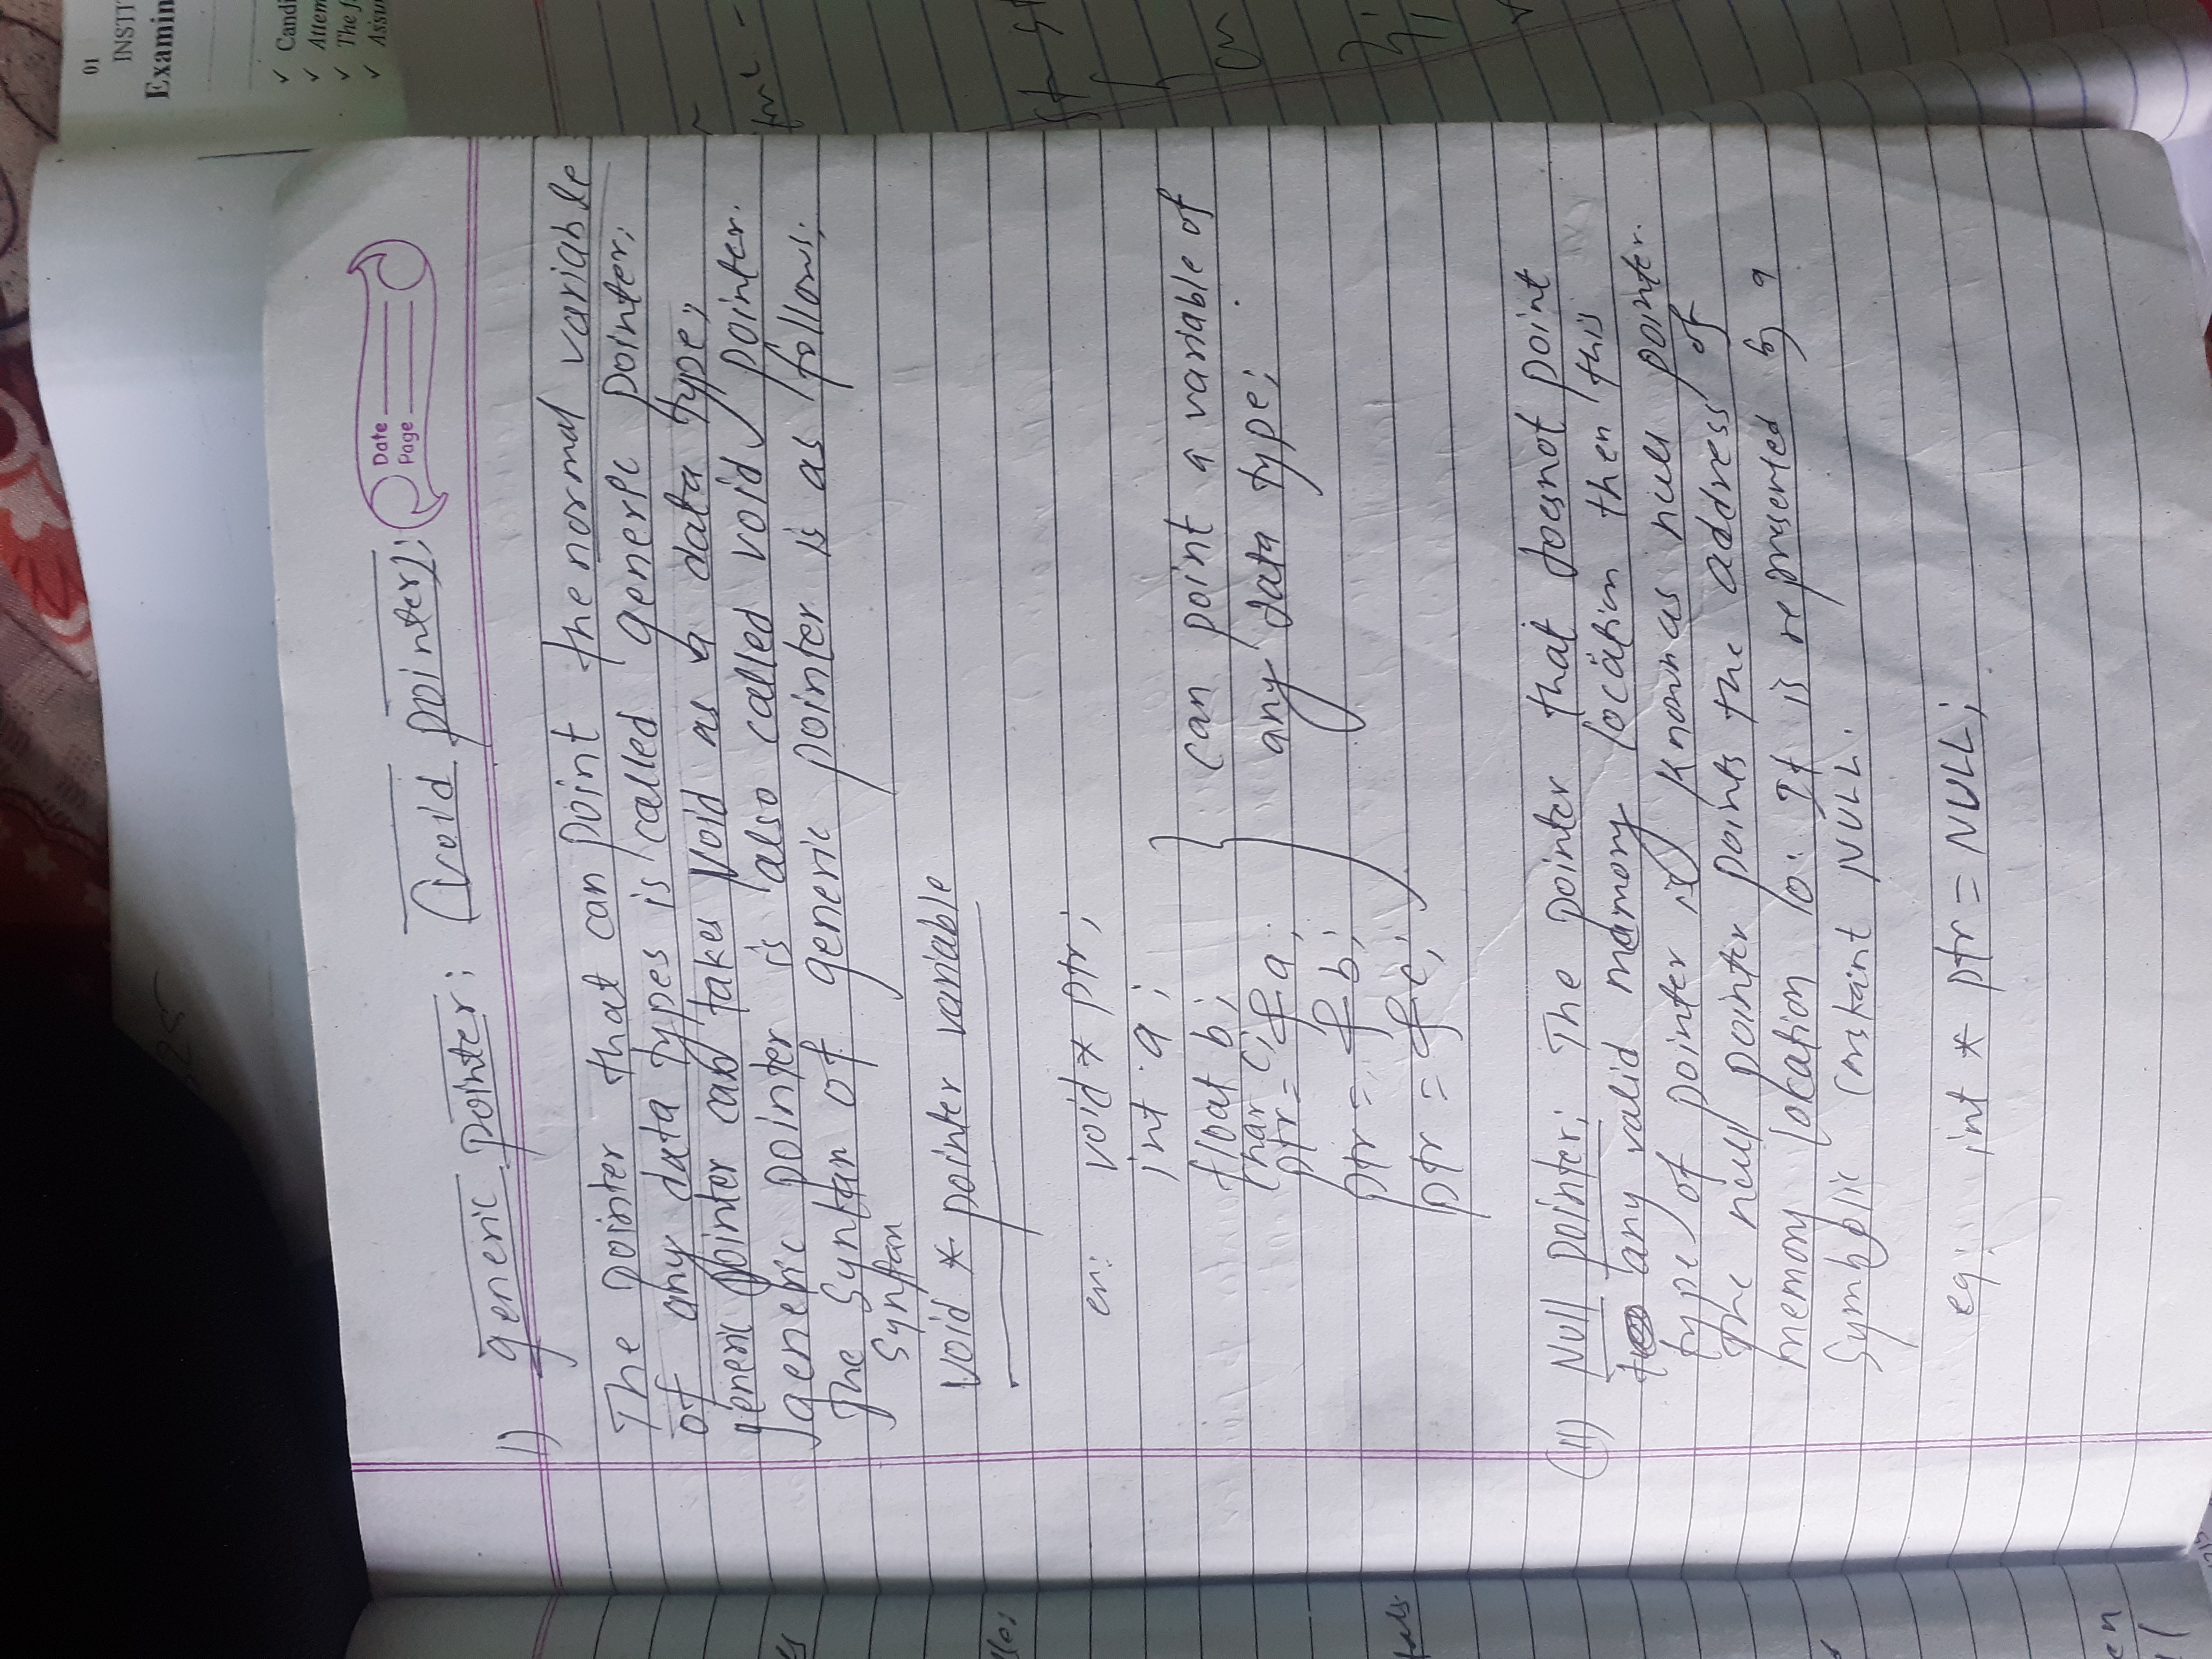 01
INSTI
Examin
Candi
Attem
The f
Assu
Date
Page
1) generic pointer; (void pointer);
The pointer that can point the normal variable
of any data types is called generic pointer;
generic pointer can takes void as a data type;
generic pointer is also called void pointer.
The Syntax of generic pointer is as follows;
Syntax
void * pointer variable
ex: void * ptr;
int a;
float b;
char c;
ptr = &a;
ptr = &b;
ptr = &c;
can point a variable of
any data type;
(ii) Null pointer; The pointer that doesnot point
any valid memory location then this
type of pointer is known as null pointer.
The null pointer points the address of
memory location 0. It is represented by a
Symbolic constant NULL.
eg: int * ptr = NULL;